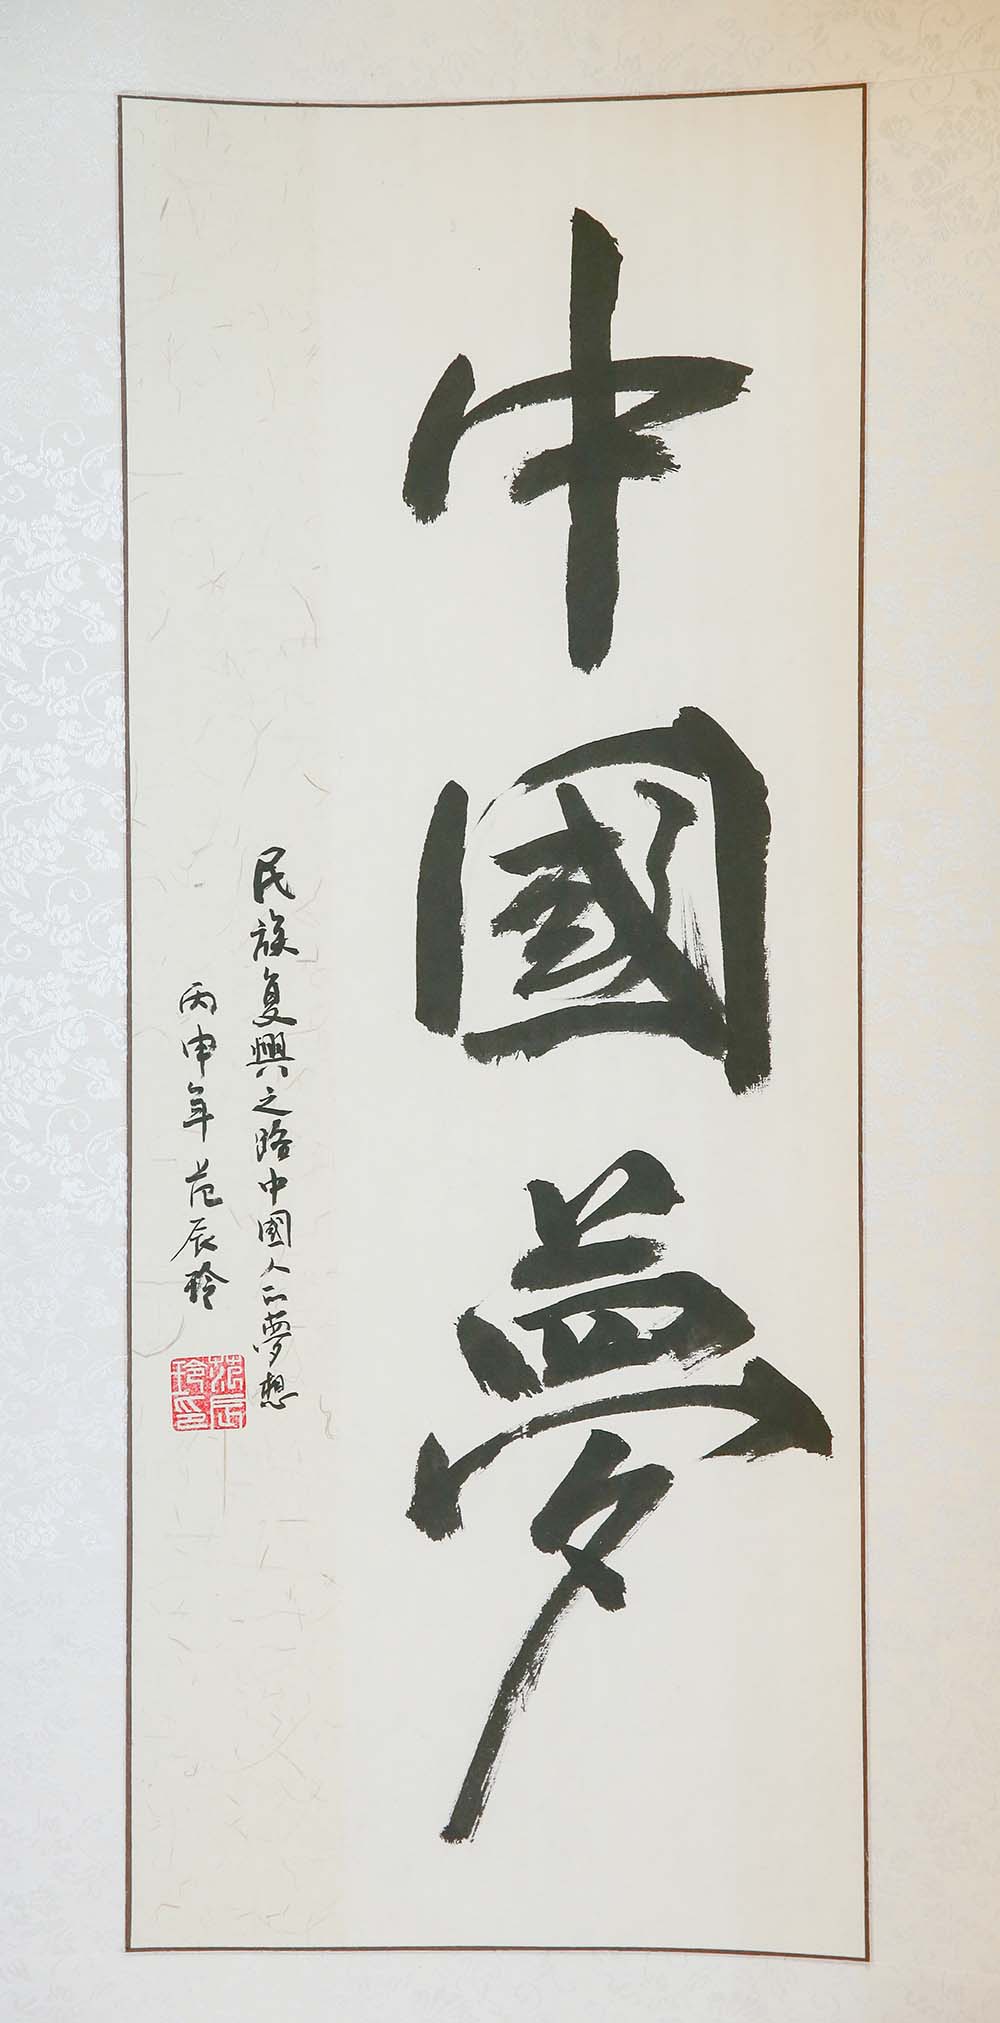 中國夢
民族复興之路中國人的夢想
丙申年范辰玲
范辰玲印